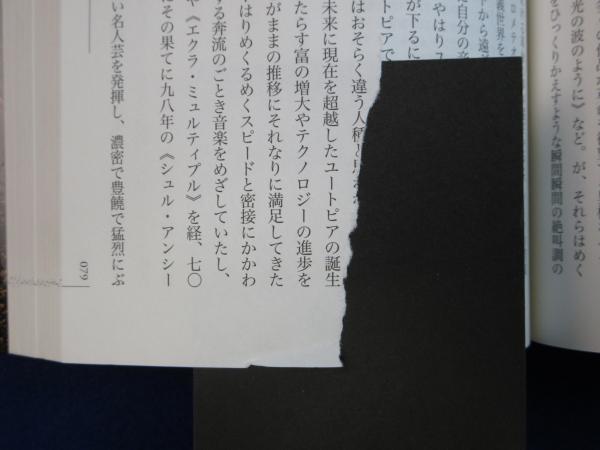 光の波のように》など。が、それらはめく
をひっくりかえすような瞬間瞬間の絶叫調の
ロメテオ
義世界を
下から遠
た自分の
やはりユ
が下るに
トピアで
はおそらく違う人種
未来に現在を超越したユートピアの誕生
たらす富の増大やテクノロジーの進歩を
がままの推移にそれなりに満足してきた
はりめくるめくスピードと密接にかかわ
する奔流のごとき音楽をめざしていたし、
や《エクラ・ミュルティプル》を経、七〇
にその果てに九八年の《シュル・アンシー
い名人芸を発揮し、濃密で豊饒で猛烈にぶ
079